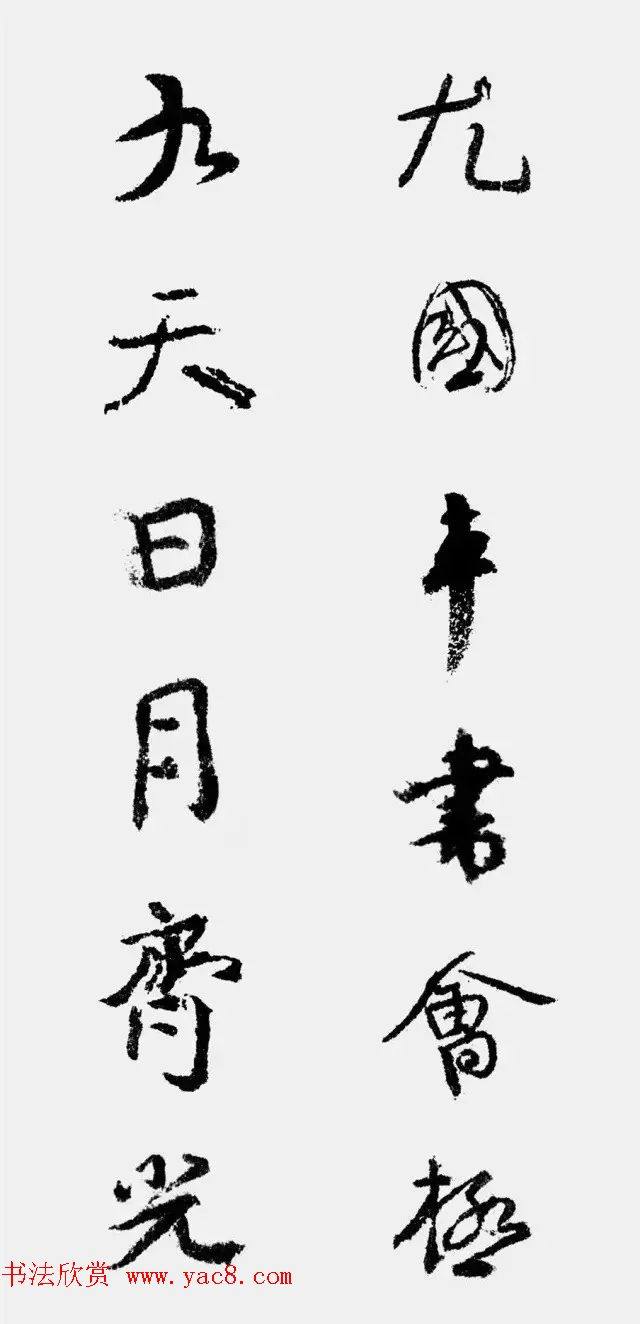 國車書會極
九天日月齊光
书法欣赏 www.yac8.com